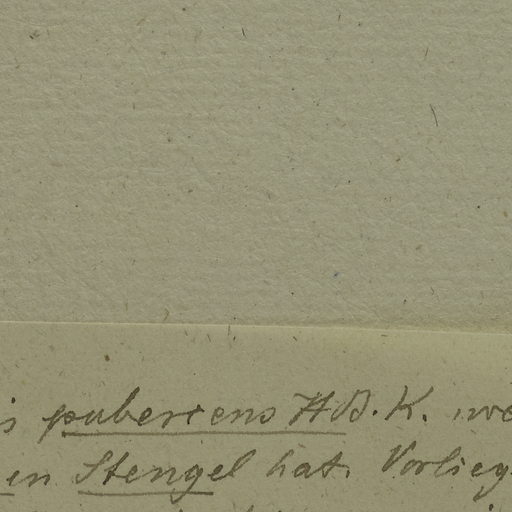 s puberrens H.B.K. we
en Stengel hat. Vorlieg